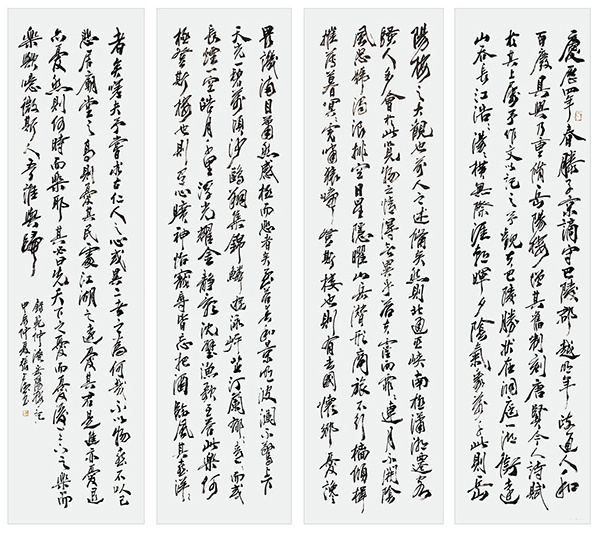 慶歷四年春滕子京謫守巴陵郡越明年政通人和
百廢具興乃重修岳陽樓增其舊制刻唐賢今人詩賦
於其上屬予作文以記之予觀夫巴陵勝狀在洞庭一湖銜遠
山吞長江浩浩湯湯橫無際涯朝暉夕陰氣象萬千此則岳
陽樓之大觀也前人之述備矣然則北通巫峽南極瀟湘遷客
騷人多會於此覽物之情得無異乎若夫霪雨霏霏連月不開陰
風怒號濁浪排空日星隱曜山岳潛形商旅不行檣傾楫
摧薄暮冥冥虎嘯猿啼登斯樓也則有去國懷鄉憂讒
畏譏滿目蕭然感極而悲者矣至若春和景明波瀾不驚上下
天光一碧萬頃沙鷗翔集錦鱗游泳岸芷汀蘭郁郁青青而或
長煙一空皓月千里浮光耀金靜影沈璧漁歌互答此樂何
極登斯樓也則有心曠神怡寵辱皆忘把酒臨風其喜洋洋
者矣嗟夫予嘗求古仁人之心或異二者之為何哉不以物喜不以己
悲居廟堂之高則憂其民處江湖之遠則憂其君是進亦憂退
亦憂然則何時而樂耶其必曰先天下之憂而憂後天下之樂而
樂歟噫微斯人吾誰與歸
錄范仲淹岳陽樓記